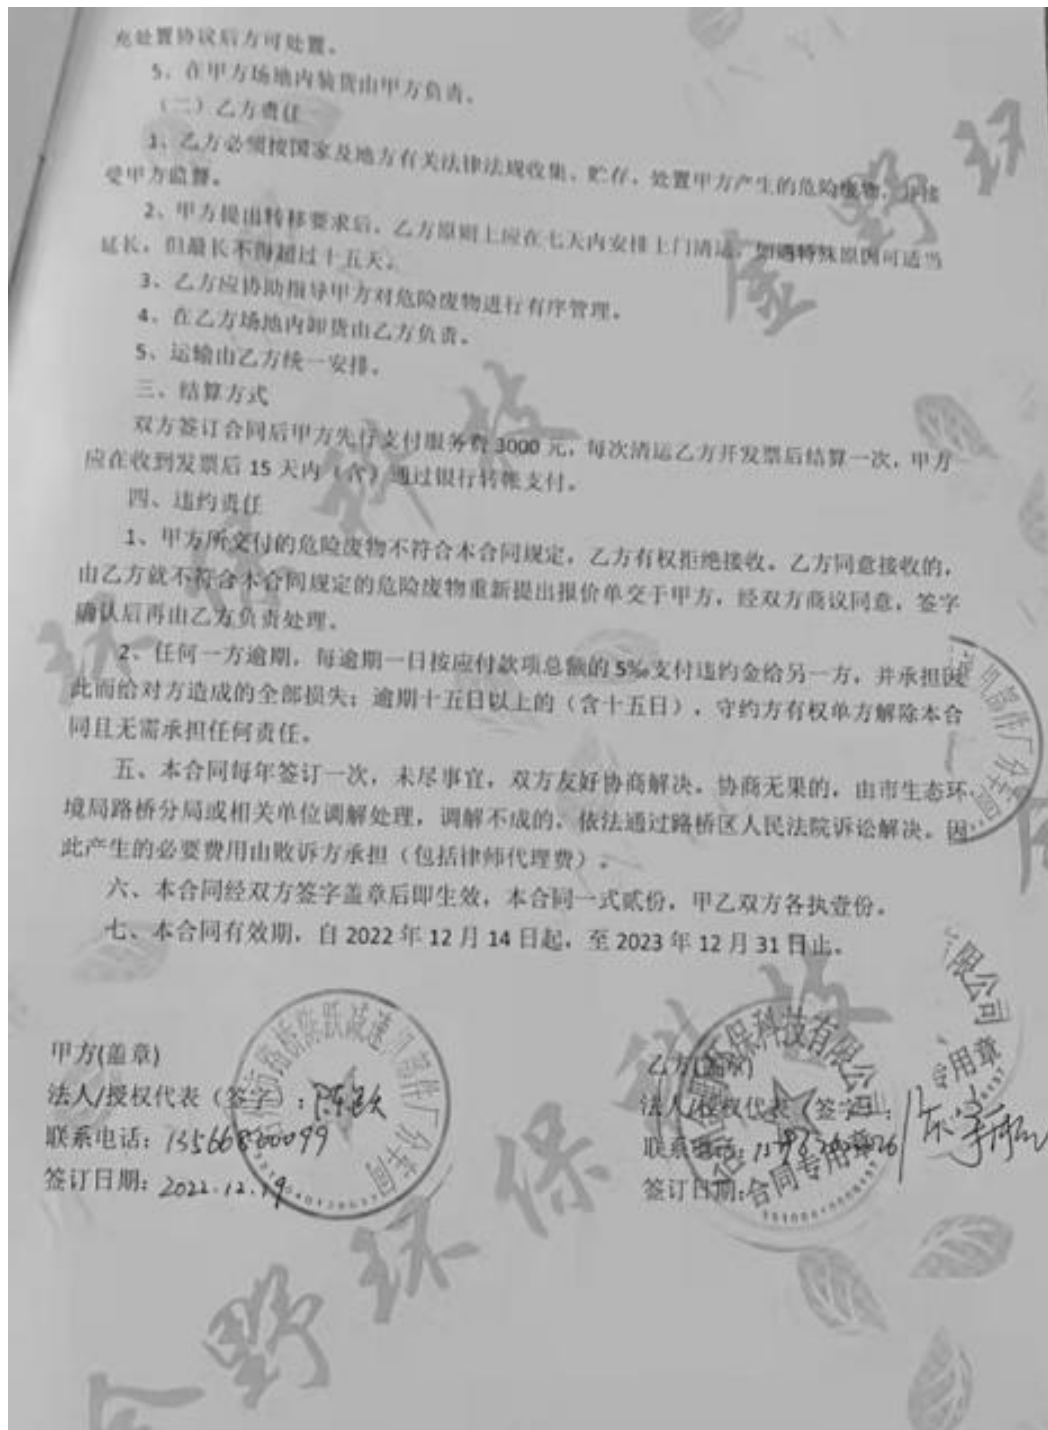 充处置协议后方可处置。
5、在甲方场地内装货由甲方负责。
（二）乙方责任
1、乙方必须按国家及地方有关法律法规收集、贮存、处置甲方产生的危险废物，并接
受甲方监督。
2、甲方提出转移要求后，乙方原则上应在七天内安排上门清运，如遇特殊原因可适当
延长，但最长不得超过十五天。
3、乙方应协助指导甲方对危险废物进行有序管理。
4、在乙方场地内卸货由乙方负责。
5、运输由乙方统一安排。
三、结算方式
双方签订合同后甲方先行支付服务费 3000 元，每次清运乙方开发票后结算一次，甲方
应在收到发票后 15 天内（含）通过银行转帐支付。
四、违约责任
1、甲方所交付的危险废物不符合本合同规定，乙方有权拒绝接收。乙方同意接收的，
由乙方就不符合本合同规定的危险废物重新提出报价单交于甲方，经双方商议同意，签字
确认后再由乙方负责处理。
2、任何一方逾期，每逾期一日按应付款项总额的 5‰支付违约金给另一方，并承担因
此而给对方造成的全部损失；逾期十五日以上的（含十五日），守约方有权单方解除本合
同且无需承担任何责任。
五、本合同每年签订一次，未尽事宜，双方友好协商解决。协商无果的，由市生态环
境局路桥分局或相关单位调解处理，调解不成的，依法通过路桥区人民法院诉讼解决。因
此产生的必要费用由败诉方承担（包括律师代理费）。
六、本合同经双方签字盖章后即生效，本合同一式贰份，甲乙双方各执壹份。
七、本合同有效期，自 2022 年 12 月 14 日起，至 2023 年 12 月 31 日止。
甲方(盖章)
法人/授权代表（签字）：
联系电话：13566860099
签订日期：2022.12.19
乙方(盖章)
法人/授权代表（签字）：
联系电话：
签订日期：
环保科技有限公司
合同专用章
有限公司
专用章
金野环保科技